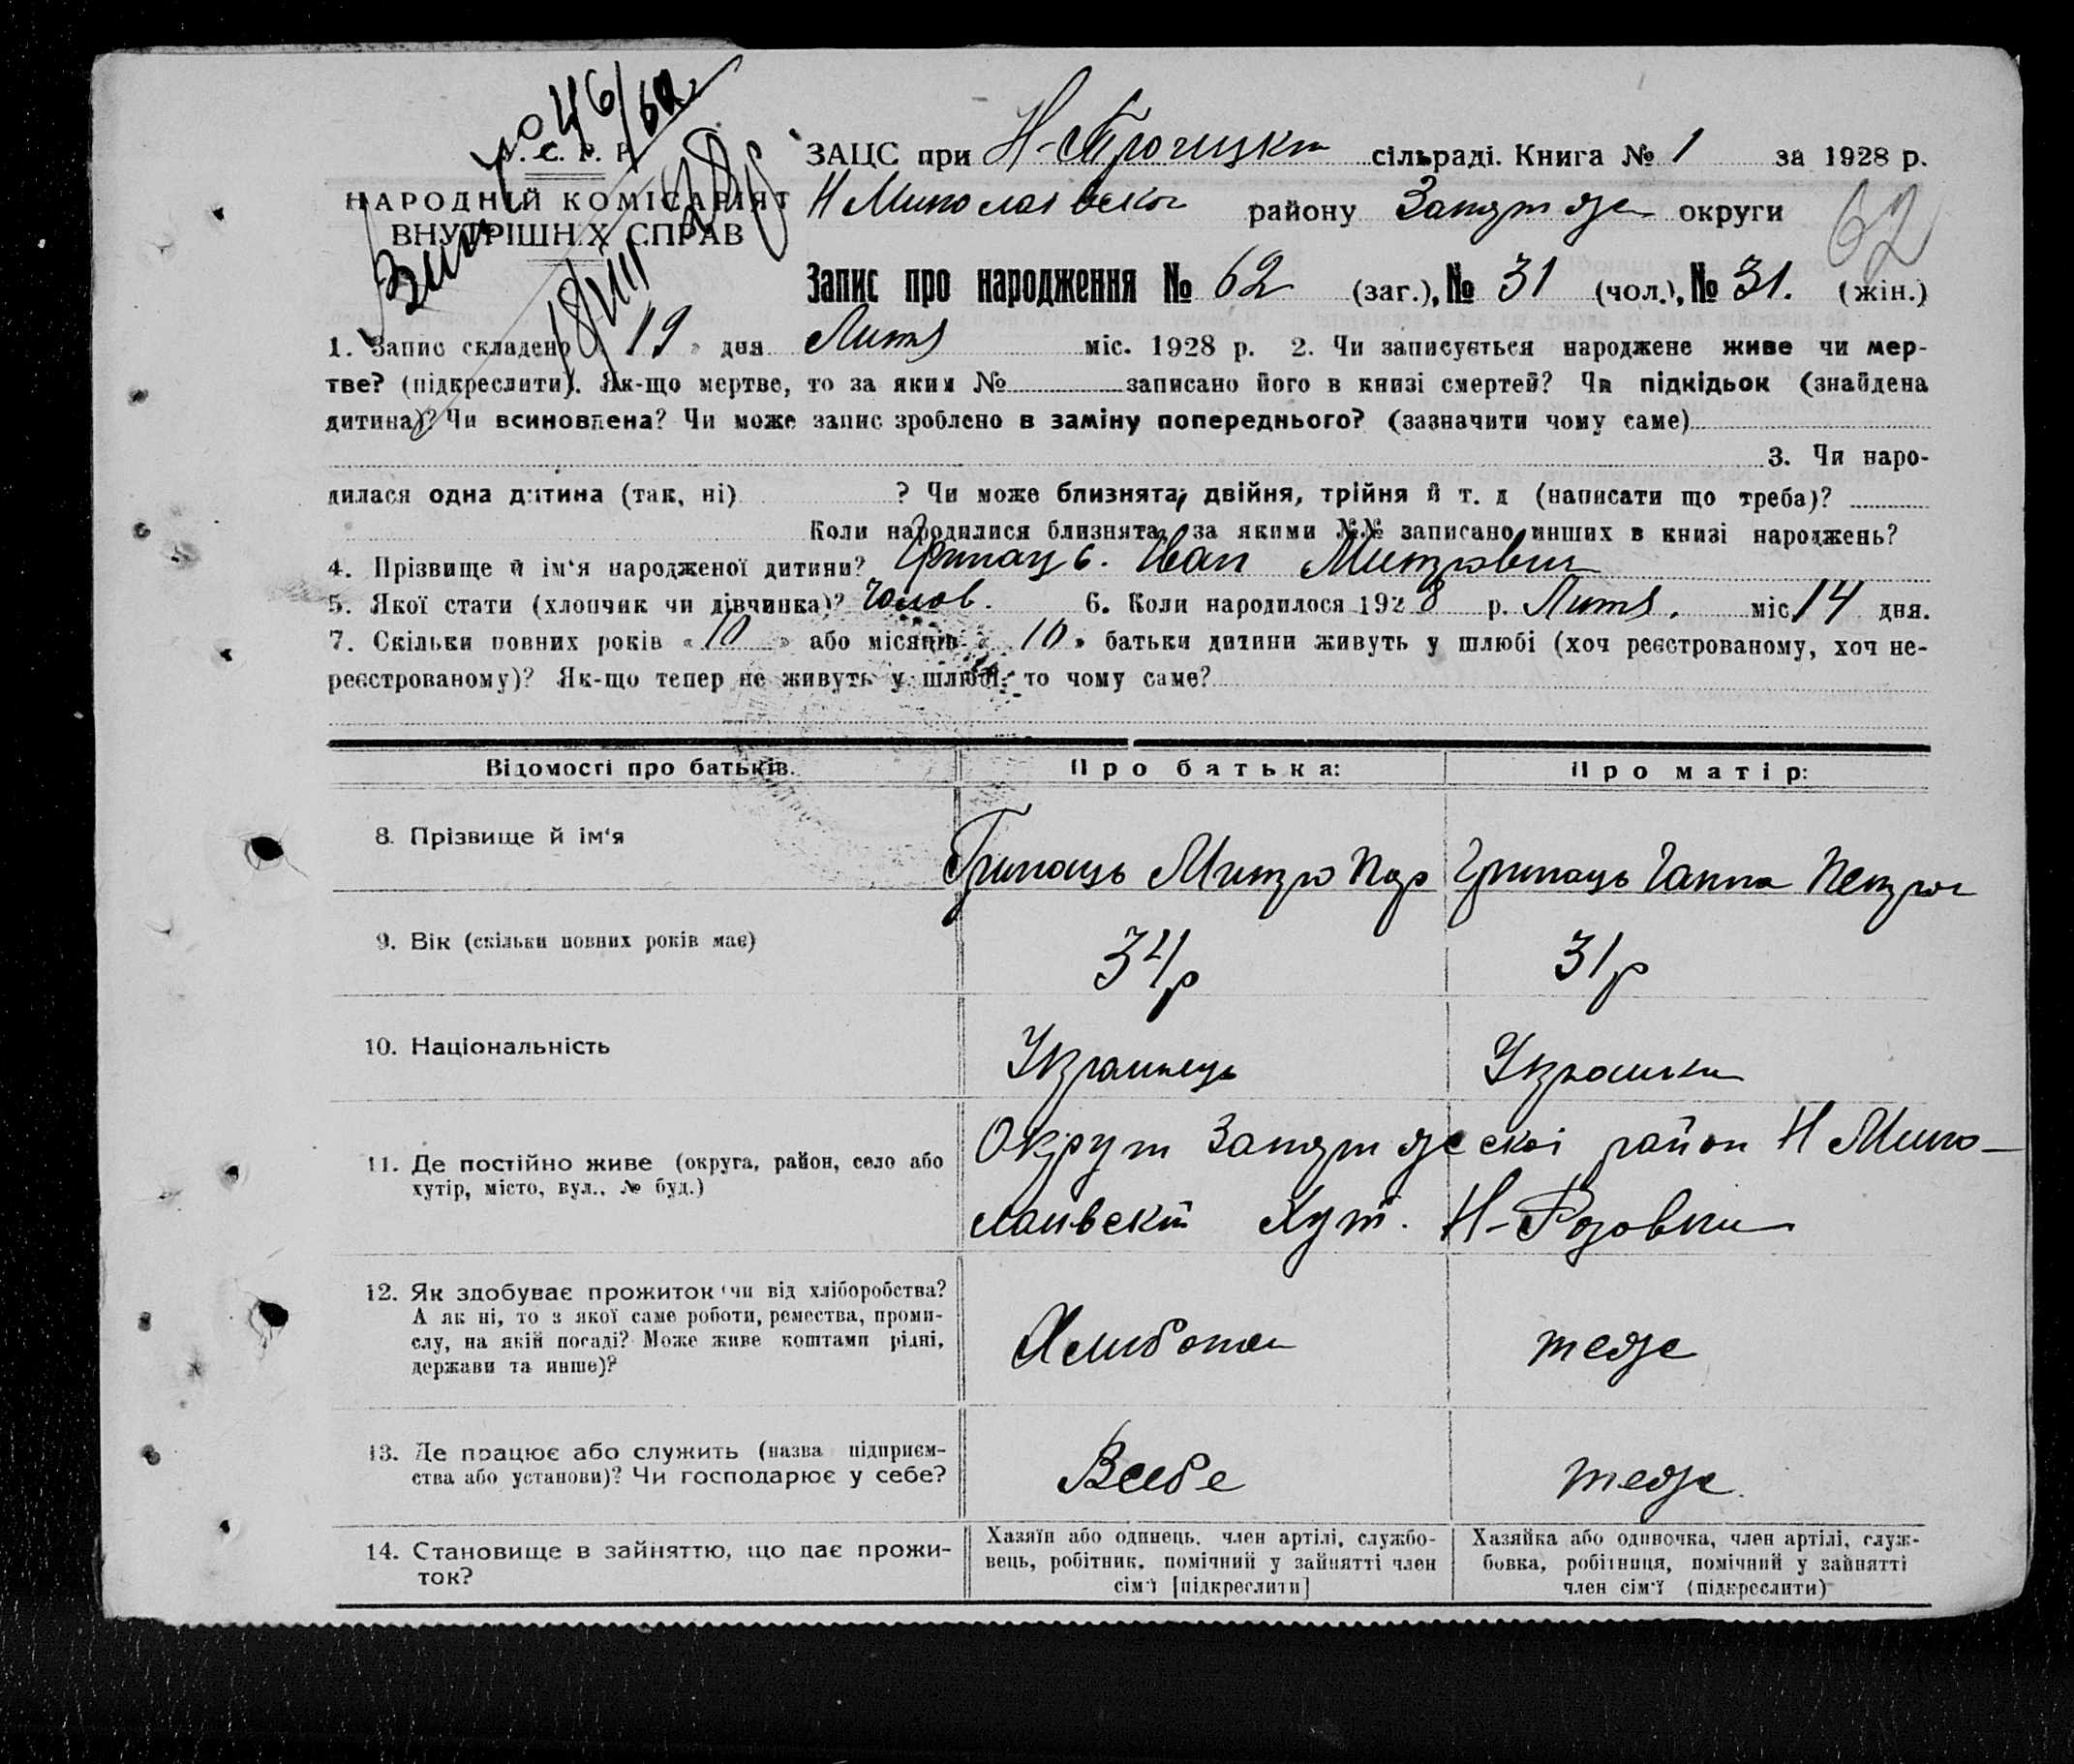 46/62
С. Р. Р.
НАРОДНІЙ КОМІСАРІЯТ
ВНУТРІШНІХ СПРАВ
ЗАЦС при Н-Троицкій сільраді. Книга № 1 за 1928 р.
Н Миколаївської району Запоріж округи
62
Запис про народження № 62 (заг.), № 31 (чол.), № 31. (жін.)
1. Запис складено « 19 » дня Лют міс. 1928 р. 2. Чи записується народжене живе чи мер-
тве? (підкреслити). Як-що мертве, то за яким № записано його в книзі смертей? Чи підкідьок (знайдена
дитина)? Чи всиновлена? Чи може запис зроблено в заміну попереднього? (зазначити чому саме)
3. Чи наро-
дилася одна дитина (так, ні) ? Чи може близнята, двійня, трійня й т. д (написати що треба)?
Коли народилися близнята, за якими №№ записано инших в книзі народжень?
4. Прізвище й ім‘я народженої дитини? Иван Митрович
5. Якої стати (хлопчик чи дівчинка)? Чолов. 6. Коли народилося 1928 р. Лют. міс 14 дня.
7. Скільки повних років « 10 » або місяців « 10 » батьки дитини живуть у шлюбі (хоч реєстрованому, хоч не-
реєстрованому)? Як-що тепер не живуть у шлюбі, то чому саме?
Відомості про батьків. Про батька: Про матір:
8. Прізвище й ім‘я Грипаць Митро Грипаць Ганна Петров
9. Вік (скільки повних років має) 34 р 31 р
10. Національність Українець Українка
11. Де постійно живе (округа, район, село або
хутір, місто, вул., № буд.)
Округи Запоріжської район Н Мико-
лаївскій Хут. Н-Розовки
12. Як здобуває прожиток чи від хліборобства?
А як ні, то з якої саме роботи, ремества, проми-
слу, на якій посаді? Може живе коштами рідні,
держави та инше)?
теже
13. Де працює або служить (назва підприєм-
ства або установи)? Чи господарює у себе?
Всебе теже.
14. Становище в зайняттю, що дає прожи-
ток?
Хазяїн або одинець, член артілі, службо-
вець, робітник, помічний у зайнятті член
сім‘ї [підкреслити]
Хазяйка або одиночка, член артілі, служ-
бовка, робітниця, помічний у зайнятті
член сім‘ї (підкреслити)